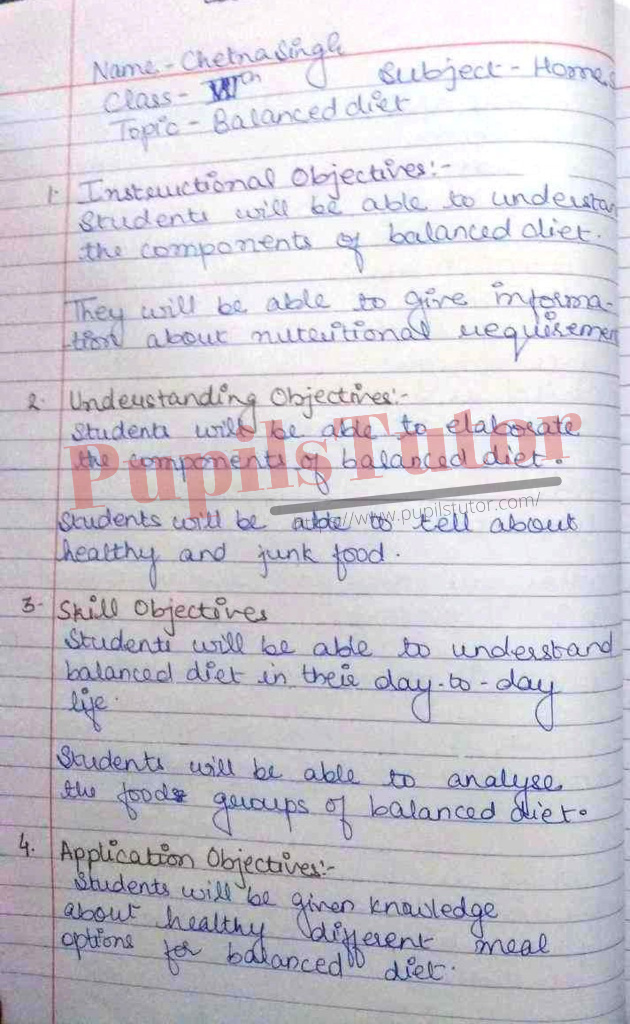 Name - Chetna Singh
Class - th Subject - Home
Topic - Balanced diet
1. Instructional Objectives:-
Students will be able to understan
the components of balanced diet.
They will be able to give informa-
tion about nutritional requiremen
2. Understanding Objectives:-
Students will be able to elaborate
the components of balanced diet.
PupilsTutor
http://www.pupilstutor.com/
Students will be able to tell about
healthy and junk food.
3. Skill Objectives
Students will be able to understand
balanced diet in their day-to-day
life.
Students will be able to analyse
the foods groups of balanced diet.
4. Application Objectives:-
Students will be given knowledge
about healthy different meal
options for balanced diet.